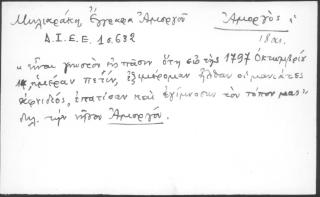 Μηλιαράκη, Έγγραφα Αμοργού Αμοργός
Δ.Ι.Ε.Ε. 1σ.632 18αι.
« ήναι γνωστόν εις πάσιν ότη εις τής 1797 Οκτωμβρίου
14, ημέραν πέτην, εξημέρομαν ήλθαν οι μανιάτες
αιφνιδίος, επατίσαν και εγίμνοσαν τον τόπον μας »
δηλ. την νήσον Αμοργόν.